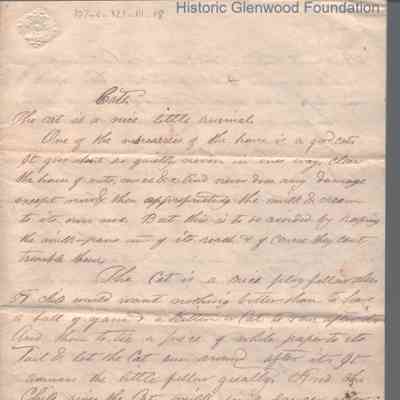 Historic Glenwood Foundation
Cats.
The cat is a nice little animal.
One of the necessaries of the house is a good cat
It goes about so quietly never in ones way, Clears
the house of rats, mice & c. And never does any damage
except now & then appropriating the milk & cream
to its own use. But this is to be avoided by keeping
the milk-pans out of its reach & of course they cant
trouble them.
The Cat is a nice play fellow
child would want nothing better than to have
a ball of yarn & a kitten or Cat to run after it
And then to tie a piece of white paper to its
Tail & let the Cat run around after it. It
amuses the little fellow greatly. And the
Child gives the Cat milk